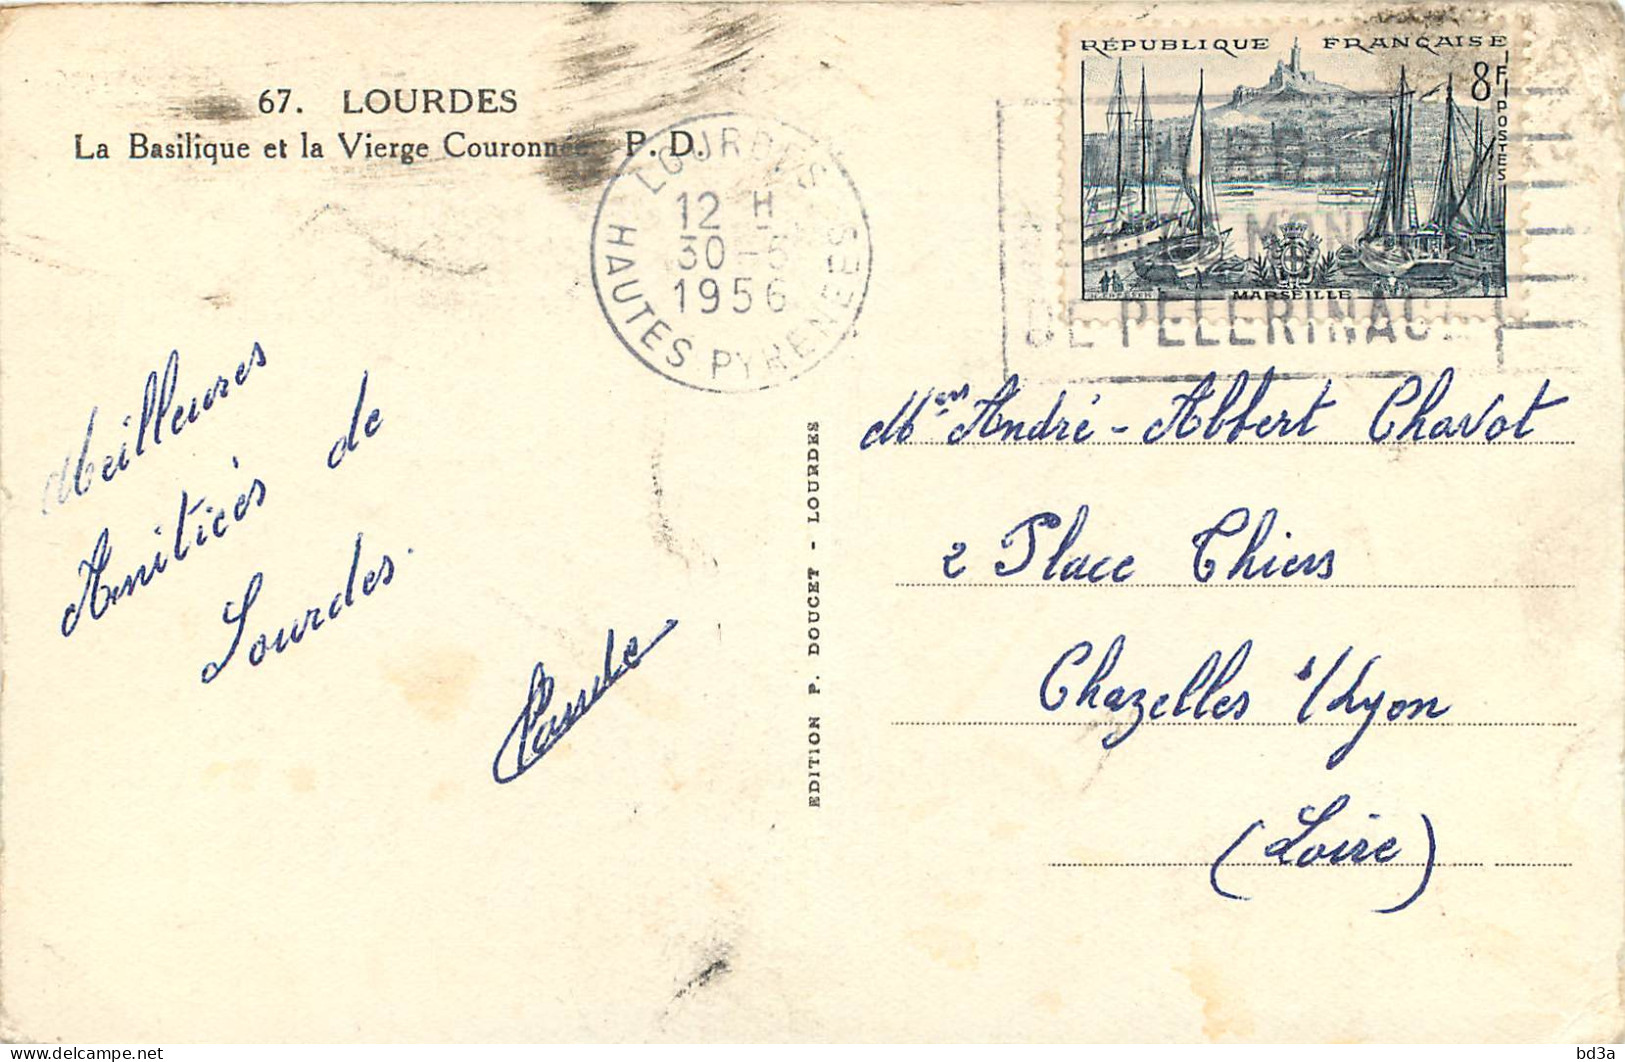 67. LOURDES
La Basilique et la Vierge Couronnée P. D.
LOURDES
12 H
30-5
1956
HAUTES PYRENEES
RÉPUBLIQUE FRANÇAISE
8F
POSTES
MARSEILLE
DE PELERINAGE
Meilleures
Amitiés de
Lourdes.
EDITION P. DOUCET - LOURDES
Mern André - Albert Chavot
2 Place Thiers
Chazelles s/Lyon
(Loire)
bd3a